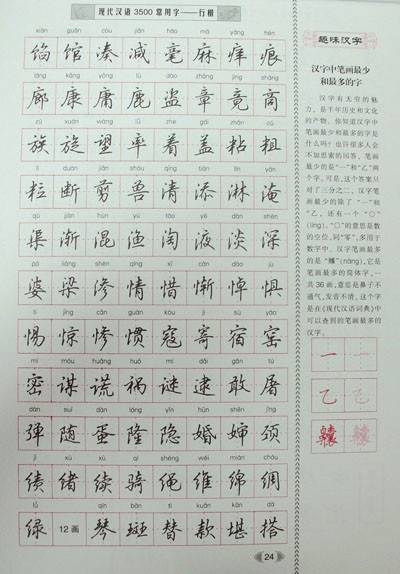 现代汉语3500常用字——行楷
xiàn guǎn còu jiǎn háo má yǎng hén
馅 馆 凑 减 毫 麻 痒 痕
láng kāng yōng lù dào zhāng jìng shāng
廊 康 庸 鹿 盗 章 竟 商
zú xuán wàng shuài zhe gài zhān cū
族 旋 望 率 着 盖 粘 粗
lì duàn jiǎn shòu qīng tiān lín yān
粒 断 剪 兽 清 添 淋 淹
qú jiàn hùn yú táo yè dàn shēn
渠 渐 混 渔 淘 液 淡 深
pó liáng shèn qíng xī cán dào jù
婆 梁 渗 情 惜 惭 悼 惧
tì jīng cǎn guàn kòu jì sù yáo
惕 惊 惨 惯 寇 寄 宿 窑
mì móu huǎng huò mí dǎi gǎn tú
密 谋 谎 祸 谜 逮 敢 屠
dàn suí dàn lóng yǐn hūn shěn jǐng
弹 随 蛋 隆 隐 婚 婶 颈
jì xù xù qí shéng wéi mián chóu
绩 绪 续 骑 绳 维 绵 绸
lǜ qín bān tì kuǎn kān dā
绿 12画 琴 斑 替 款 堪 搭
24
趣味汉字
汉字中笔画最少
和最多的字
汉字有无穷的魅
力，是千年历史和文化
的产物。你知道汉字中
笔画最少和最多的字是
什么吗？也许很多人会
不加思索的回答，笔画
最少的是“一”和“乙”两
个字。可是，这个答案只
对了三分之二，汉字笔
画最少的除了“一”和
“乙，还有一个“〇”
(líng)，“〇”的意思是数
的空位，同“零”，多用于
数字中。汉字笔画最多
的是“齉”(nàng)，它是
笔画最多的简体字，一
共36画，意思是鼻子不
通气，发音不清。这个字
是在《现代汉语词典》中
可以查到的笔画最多的
汉字。
一
乙 飞
齉 齉